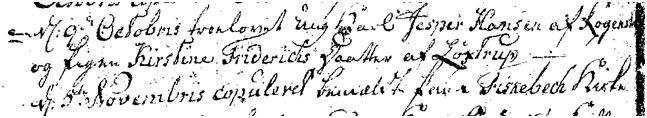 d. 9de Octobris troelovet Ung Karl Jesper Hansen af
og Pigen Kirstine Friderichs Daatter af Løxtrup
d. 5te Novembris copuleret bemældte Par i Fiskebech Kirke